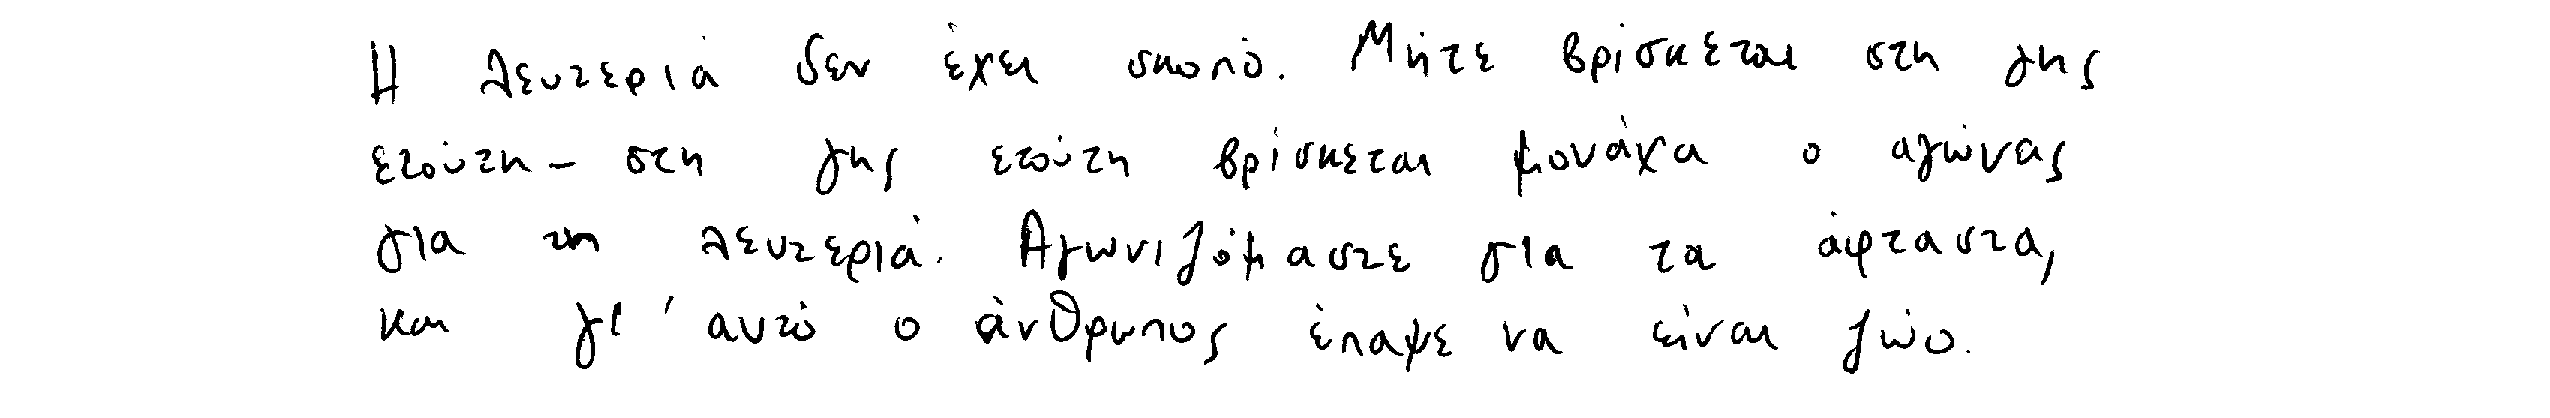 Η λευτεριά δεν έχει σκοπό. Μήτε βρίσκεται στη γης
ετούτη - στη γης ετούτη βρίσκεται μονάχα ο αγώνας
για τη λευτεριά. Αγωνιζόμαστε για τα άφταστα,
και γι' αυτό ο άνθρωπος έπαψε να είναι ζώο.